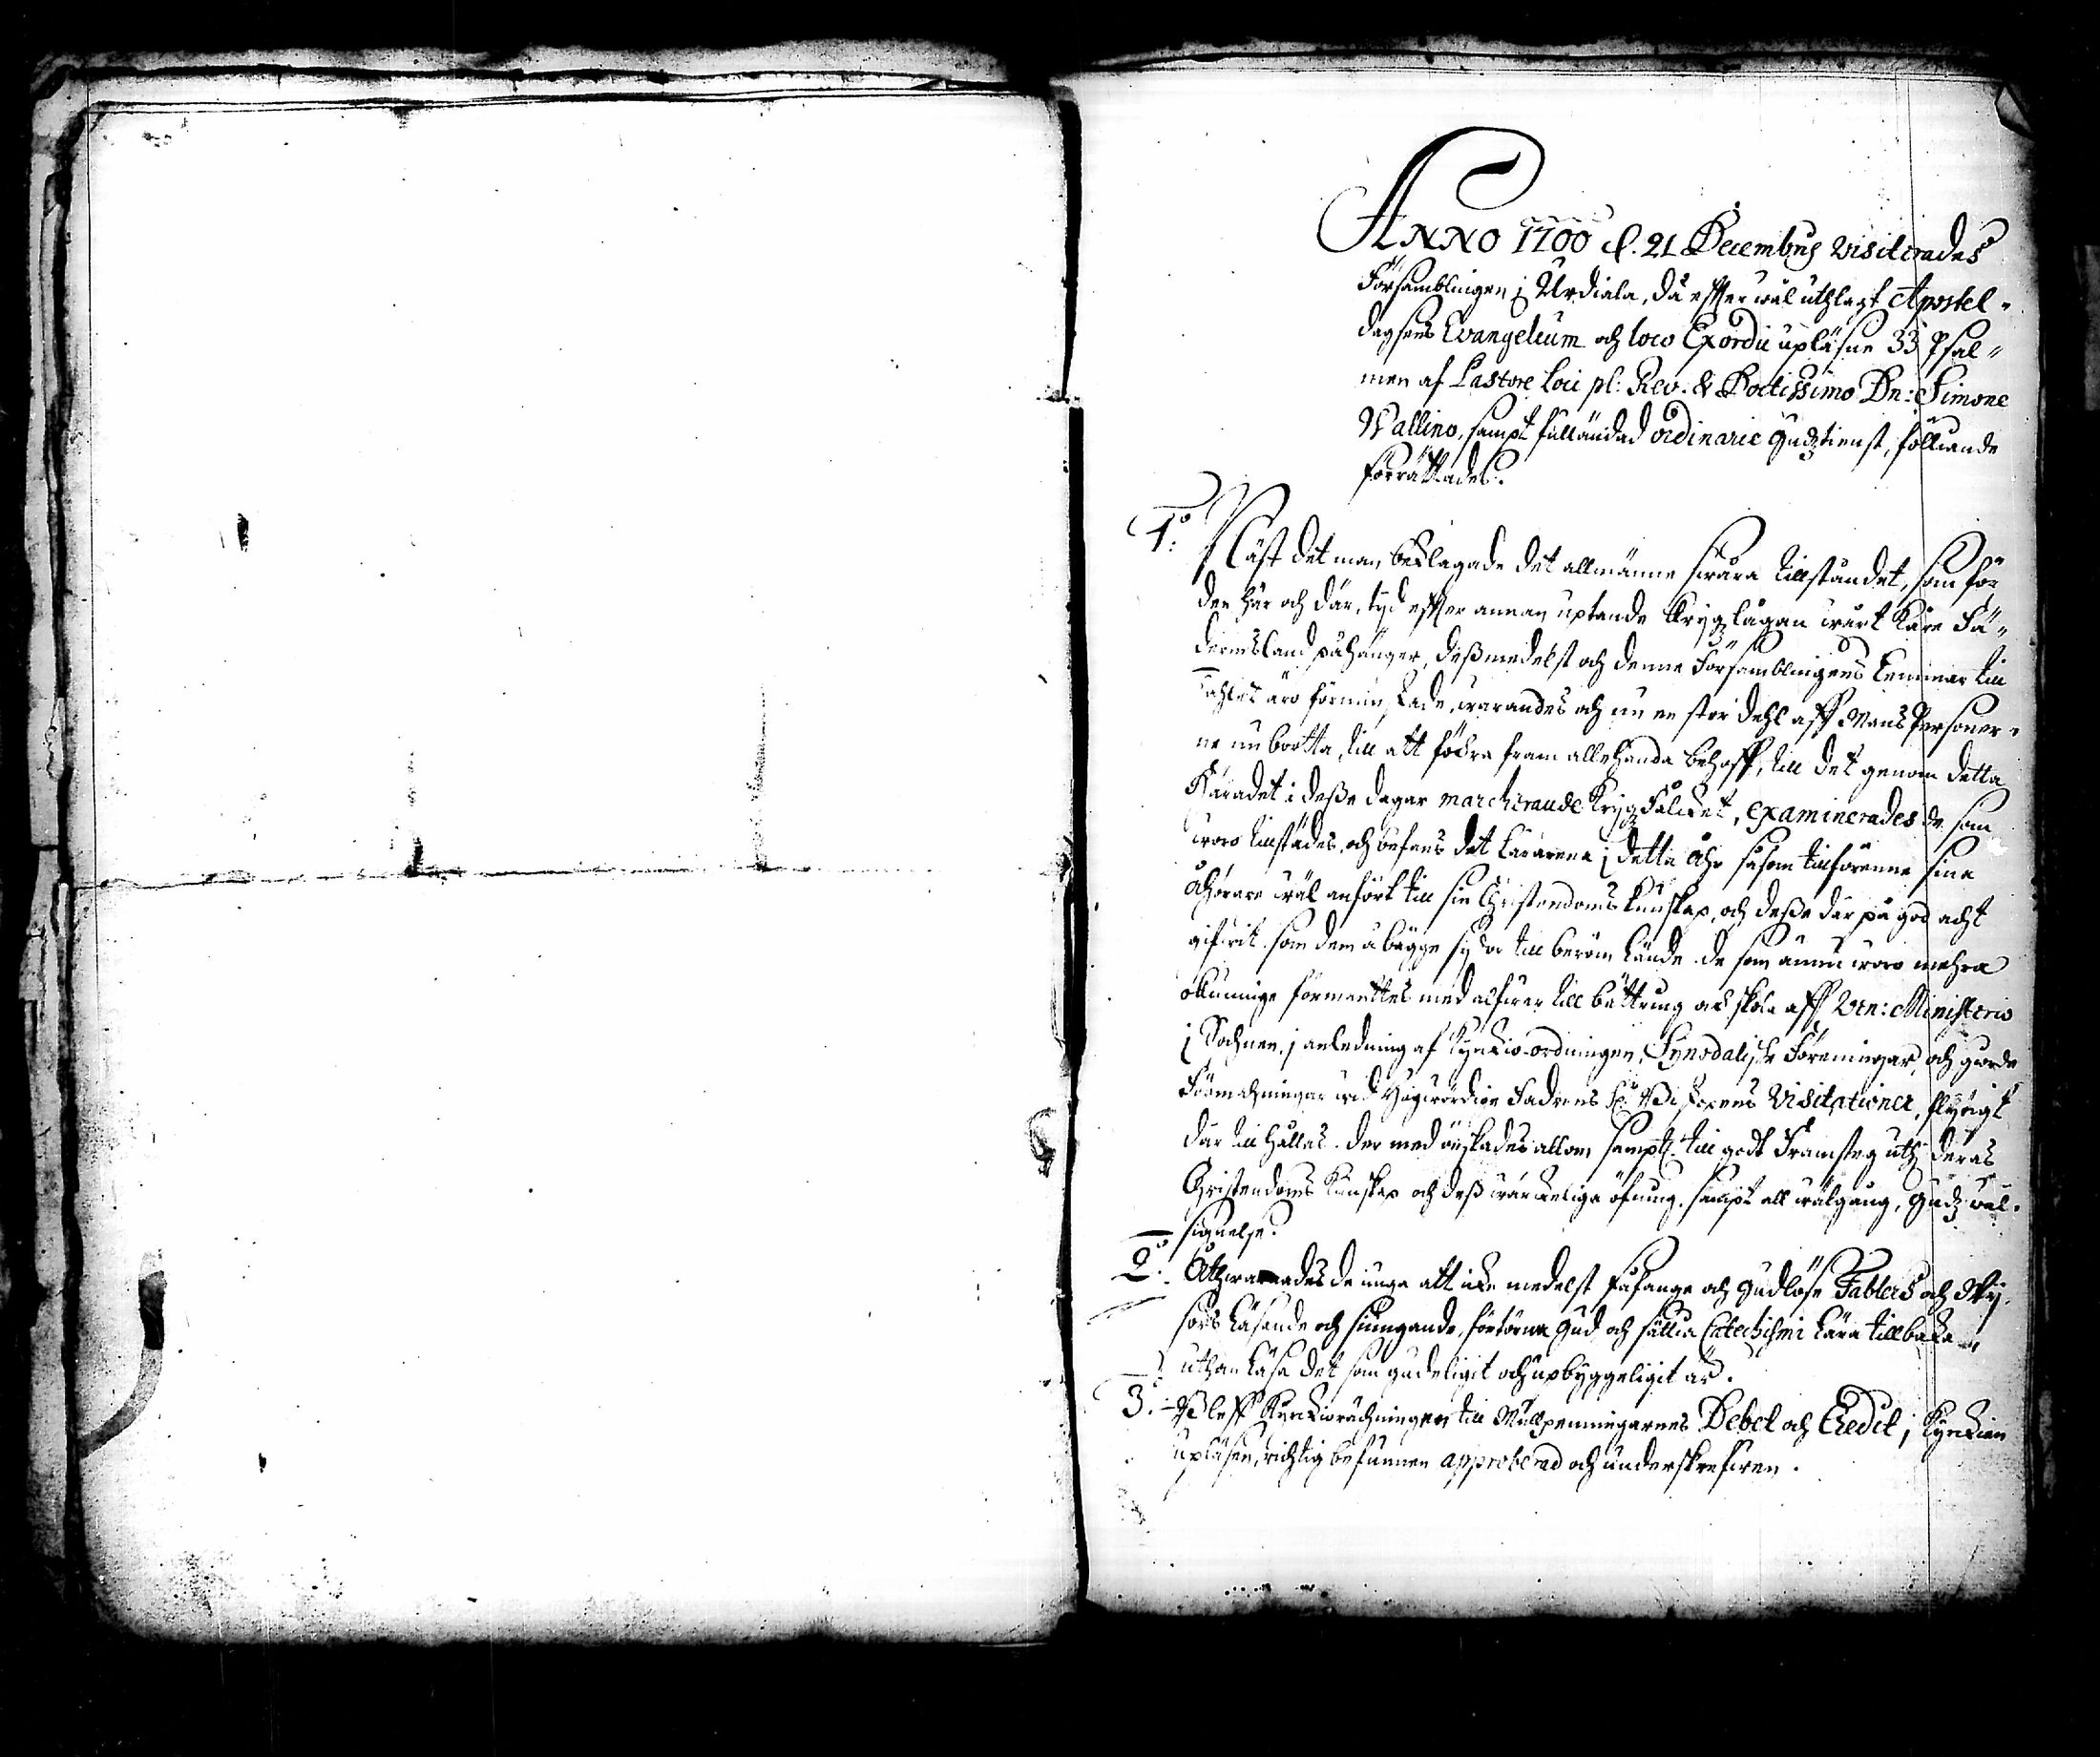 ANNO 1700 d. 21 Decembris visiterades
Församblingen j Urdiala, då effter wäl uthlagt Apostel-
dagsens Evangelium och loco Exordii upläsne 33 Psal-
men af Pastore loci pl: Rev. & Doctissimo Dn: Simone
Wallino, sampt fulländad ordinarie Gudztienst, föllande
förrättades.
1:o Näst det man beklagade det allmänne swåra tillståndet, som för
den här och där, tijd effter annan uptände Krygzlågan wårt Käre Fä-
dernesland påhänger, desmedelst och denne Församblingens Lemmar till
tahlet äro förminskade, warandes och nu en stor dehl aff Mans Personer-
ne nu bortta, till att fodra fram allehanda behoff, till det genom detta
Häradet i desse dagar marcherande Krygzfolcket, examinerades de som
woro tillstädes, och befans det Lärarena j detta åhr såsom tillförenne sine
åhörare wäl anfört till sin Christendoms kunskap, och desse där på god acht
gifwit, som dem å bägge sydor till beröm lände. de som ännu woro mehra
okunnige förmantes med alfwar till bättring och skola aff Ven: Ministerio
j Sochnen, j anledning af Kyrkio-ordningen, Synodalische Föreningar, och giorde
Förmahningar wid Högwördige Fadrens H: Biskopens Visitationer, flytigt
där till hållas. der med önskades allom sampt. till godt Framsteg uthi deras
Christendoms Kunskap och dess wärckeliga öfning, sampt all wälgång, Gudz wäl-
signelse.
2:o Åthwarnades de unga att icke medelst fåfänge och gudlöse Fablers och Wij-
sors läsande och siungande, förtörna Gud och sättia Catechismi Lära tillbaka,
uthan läsa det som gudeligit och upbyggeligit är.
3:o Bleff Kyrkioräkningen till Mullpenningarnes Debet och Credit, j Kyrkian
upläsen, richtig befunnen approberad och underskrefwen.